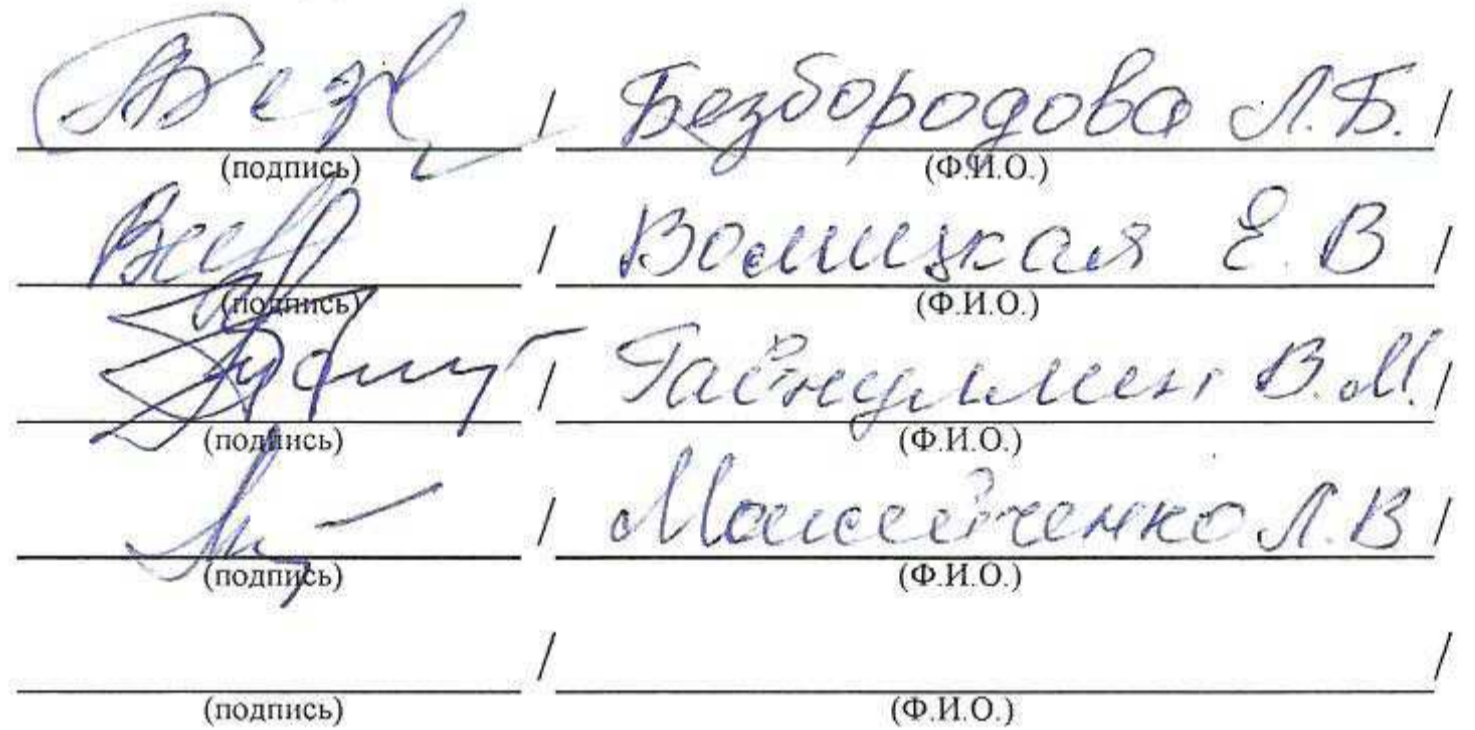 / Безбородова Л.Б. /
(подпись) (Ф.И.О.)
/ Волицкая Е.В /
(подпись) (Ф.И.О.)
/ Гайнуллин В.М. /
(подпись) (Ф.И.О.)
/ Л.В /
(подпись) (Ф.И.О.)
/ /
(подпись) (Ф.И.О.)